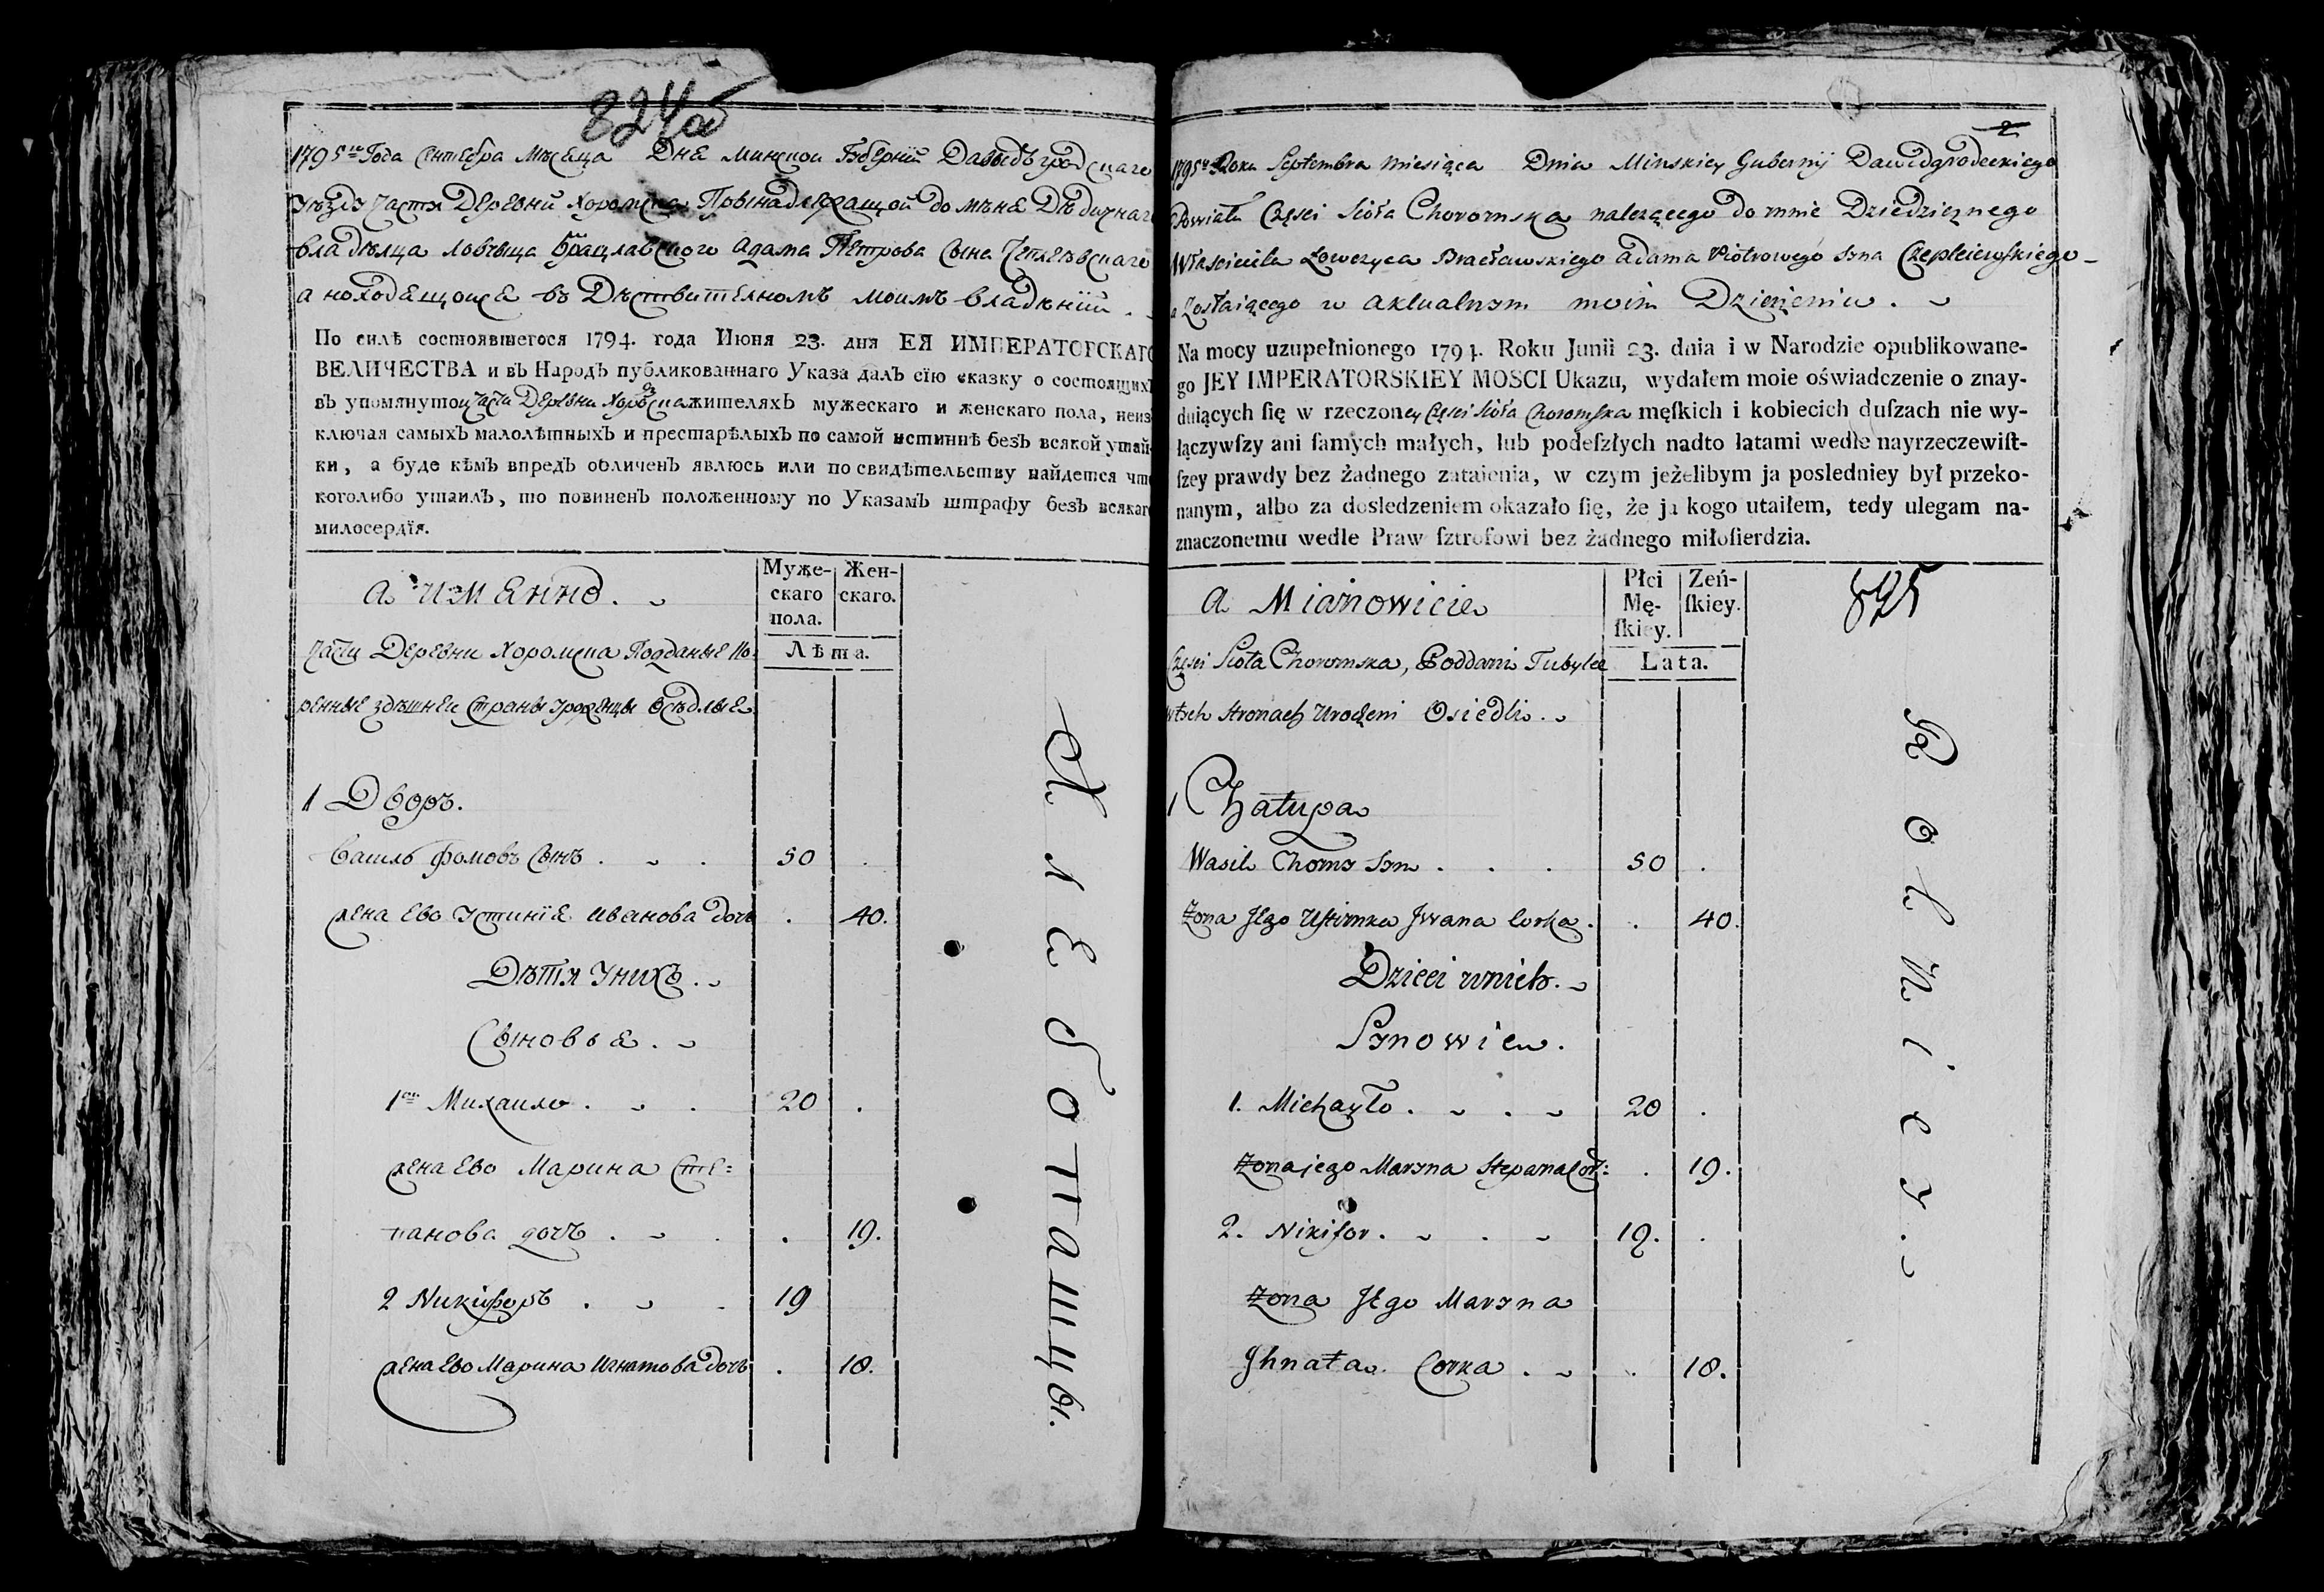 824об
1795го Года Сентебра Мѣсеца Дне Минскои Гоберніи Давыдъгродскаго
уѣзду части Деревни Хоромска Прынадлежащои до мѣне Дѣдичнаго
владѣлца ловчыца Брацлавского Адама Петрова Сына Чеплеевскаго
а находещоисе въ Дѣствителномъ моимъ владѣніи
По силѣ состоявшегося 1794. года Июня 23. дня ЕЯ ИМПЕРАТОРСКАГО
ВЕЛИЧЕСТВА и въ Народъ публикованнаго Указа далъ сїю сказку о состоящихъ
въ упомянутои части Деревни Хоромска жителяхъ мужескаго и женскаго пола, неиз
ключая самыхъ малолѣтныхъ и престарѣлыхъ по самой истиннѣ безъ всякой утай-
ки, а буде кѣмъ впредъ обличенъ явлюсь или по свидѣтельству найдется что
коголибо утаилъ, то повиненъ положенному по Указамъ штрафу безъ всякаго
милосердїя.
а именно.
Муже-
скаго
пола.
Жен-
скаго.
Лѣта.
части Деревни Хоромска Подданые Ко-
ренные здѣшнеи Страны урожеnцы Осѣдлые
1 Дворъ.
Василь Фомовъ Сынъ . . 50 .
жена Ево Устиніе Иванова дочь . 40.
Дѣти У нихъ.
Сыновье.
1ои Михаило . . 20 .
жена Ево Марина Сте=
панова дочъ . . . 19.
2 Никифоръ . . 19
жена Ево Марина Игнатова дочь . 18.
Хлебопашцы.
2
1795о Roku Septembra Miesiąca Dnia Minskiey Gubernij Dawidgrodeckiego
Powiatu Częsci Sioła Choromska należącego do mnie Dziedzicznego
Właściciela Łowczyca Bracławskiego Adama Piotrowego Syna Czepleiewskiego
a Zostaiącego w aktualnym moim Dzierżeniu.
Na mocy uzupełnionego 1794. Roku Junii 23. dnia i w Narodzie opublikowane-
go JEY IMPERATORSKIEY MOSCI Ukazu, wydałem moie oświadczenie o znay-
duiących ſię w rzeczoney Częsci Sioła Choromska męſkich i kobiecich duſzach nie wy-
łączywſzy ani ſamych małych, lub podeſzłych nadto latami wedle nayrzeczewiſt-
ſzey prawdy bez żadnego zataienia, w czym jeżelibym ja posledniey był przeko-
nanym, albo za dosledzeniem okazało ſię, że ja kogo utaiłem, tedy ulegam na-
znaczonemu wedle Praw ſztrofowi bez żadnego miłoſierdzia.
a Mianowicie
Płci
Mę-
ſkiey.
Zeń-
ſkiey.
Lata.
825
Częsci Sioła Choromska, Poddani Tubylce
w tych Stronach Urodzeni Osiedli.
1 Chałupa
Wasil Chomy Syn . . . 50 .
Żona Jego Ustimka Jwana Corka . . 40.
Dzieci u nich.
Synowie.
1. Michayło . . 20 .
Żona jego Maryna Stepana Cor: . 19.
2. Nikifor . . 19. .
Żona Jego Maryna
Jhnata Corka . . 18.
Rolniey.